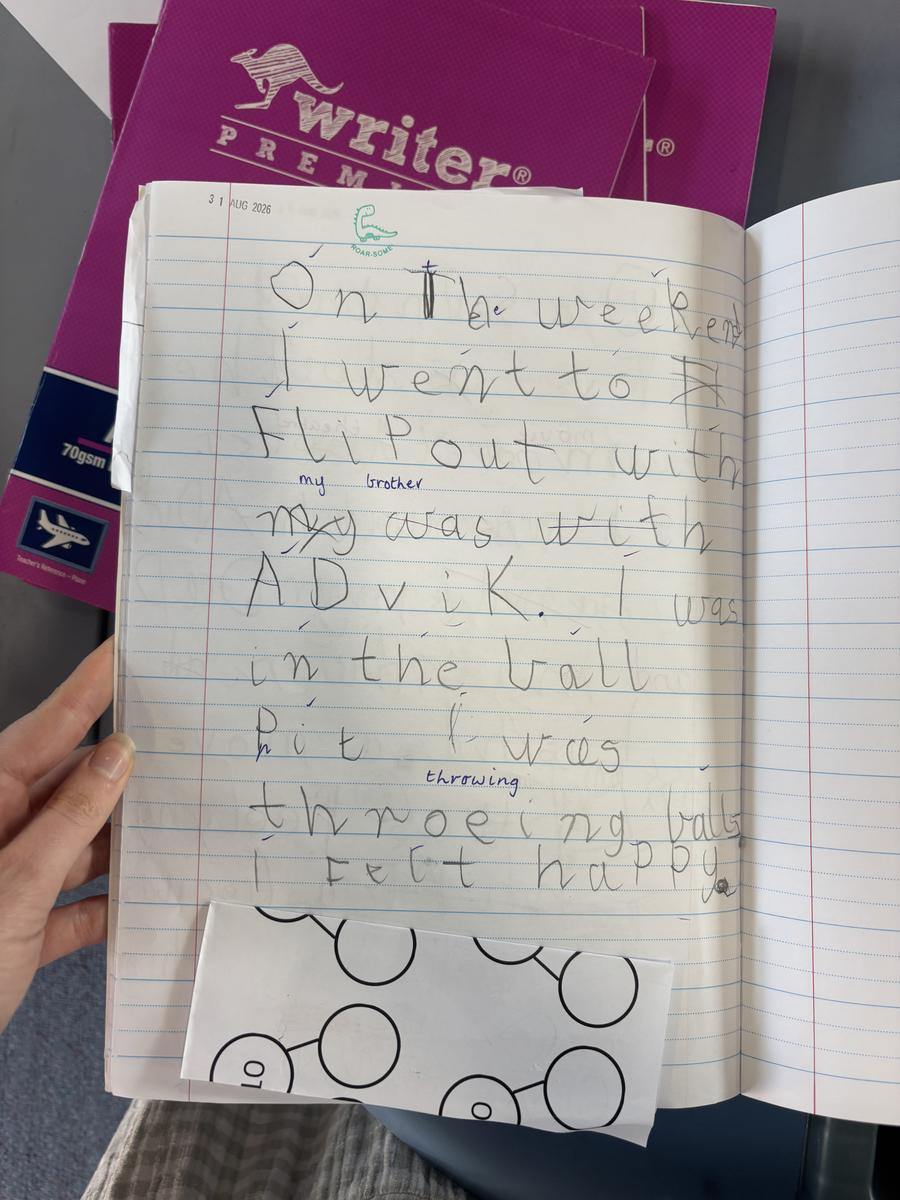 writer®
PREMI
®
70gsm
Teacher's Reference – Plane
31 AUG 2026
ROAR-SOME
On The weekend
I went to
Flipout with
my brother
my was with
ADviK. I was
in the ball
pit I was
throwing
throeing balls
I Felt happy.
10
0